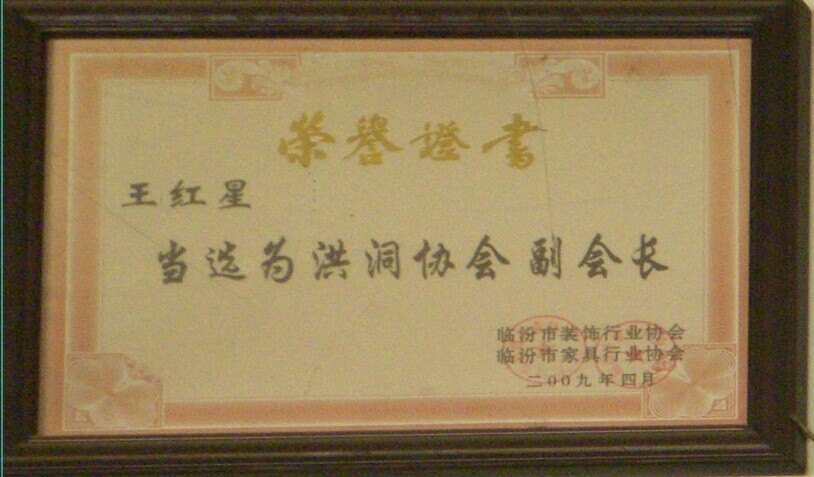 榮譽證書
王红星
当选为洪洞协会副会长
临汾市装饰行业协会
临汾市家具行业协会
二00九年四月